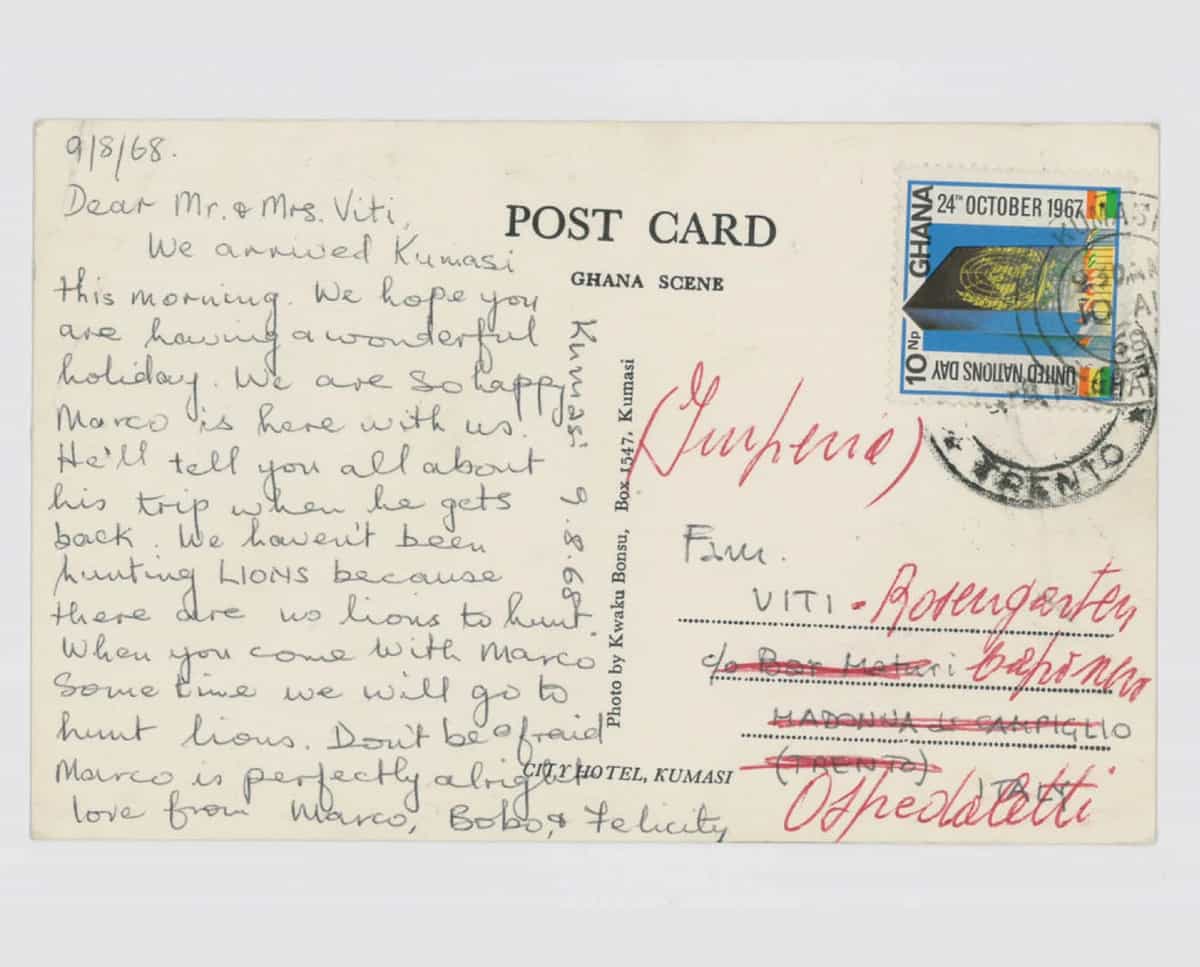 9/8/68.
Dear Mr. & Mrs. Viti,
We arrived Kumasi
this morning. We hope you
are having a wonderful
holiday. We are so happy
Marco is here with us.
He'll tell you all about
his trip when he gets
back. We haven't been
hunting LIONS because
there are no lions to hunt.
When you come with Marco
Some time we will go to
hunt lions. Don't be afraid
Marco is perfectly alright
love from Marco, Bobo, & Felicity
Kumasi 9.8.68
POST CARD
GHANA SCENE
Photo by Kwaku Bonsu, Box 1547, Kumasi
CITY HOTEL, KUMASI
GHANA
24TH OCTOBER 1967
10 Np
UNITED NATIONS DAY
KUMASI
TRENTO
(Imperia)
Fam.
VITI - Rosengarten
c/o Bar Capo nero
MADONNA di CAMPIGLIO
(TRENTO) ITALY
Ospedaletti